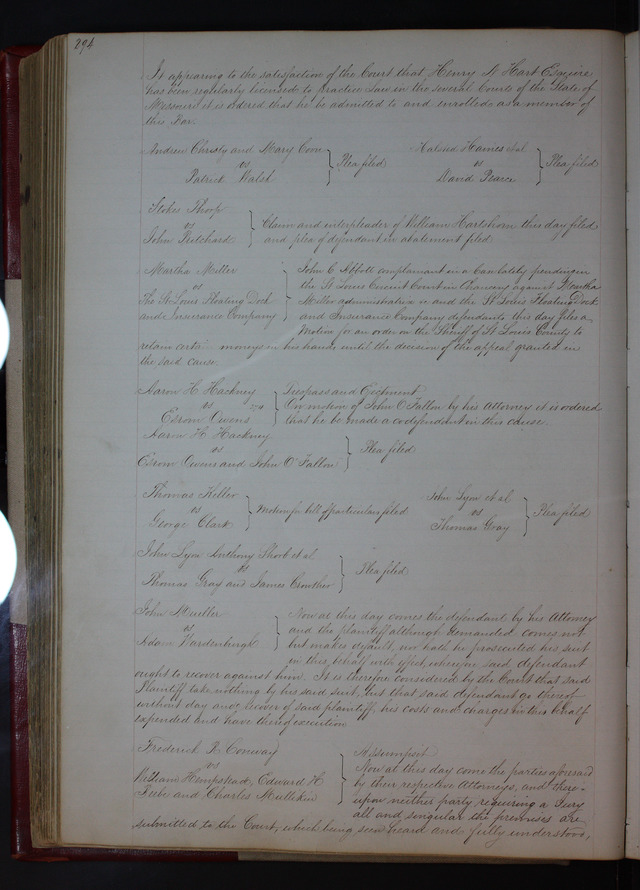 294
It appearing to the satisfaction of the Court that Henry N Hart Esquire
has been regularly licensed to practice Law in the several Courts of the State of
Missouri it is ordered that he be admitted to and enrolled as a member of
this Bar.
Andrew Christy and Mary Coon
vs
Patrick Walsh
Plea filed
Halsted Haines et al
vs
David Pearce
Plea filed
Stokes Thorp
vs
John Pritchard
Claim and interpleader of William Hartshorn this day filed
and plea of defendant in abatement filed
Martha Miller
vs
The St Louis Floating Dock
and Insurance Company
John C Abbott complainant in a Cause lately pending in
the St Louis Circuit Court in Chancery against Martha
Miller administratrix and the St Louis Floating Dock
and Insurance Company defendants this day files a
Motion for an order on the Sheriff of St Louis County to
retain certn moneys in his hands until the decision of the appeal granted in
the said cause.
Aaron H Hackney
vs 370
Esrom Owens
Trespass and Ejectment
On motion of John O'Fallon by his Attorney it is ordered
that he be made a codefendant in this cause.
Aaron H Hackney
vs
Esrom Owens and John O'Fallon
Plea filed
Thomas Keller
vs
George Clark
Motion for bill of particulars filed
John Sym et al
vs
Thomas Gray
Plea filed
John Sym Anthony Thorb et al
vs
Thomas Gray and James Crowther
Plea filed
John Mueller
vs
Adam Wardenburgh
Now at this day comes the defendant by his Attorney
and the plaintiff although demanded comes not
but makes default, nor hath he prosecuted his suit
in this behalf with effect, wherefore said defendant
ought to recover against him. It is therefore considered by the Court that said
Plaintiff take nothing by his said suit, but that said defendant go thereof
without day and recover of said plaintiff, his costs and charges in this behalf
expended and have thereof execution
Frederick R Conway
vs
William Hempstead, Edward H
Beebe and Charles Mullikin
Assumpsit
Now at this day come the parties aforesaid
by their respective Attorneys, and there-
upon neither party requiring a Jury
all and singular the premises are
submitted to the Court, which being seen heard and fully understood,